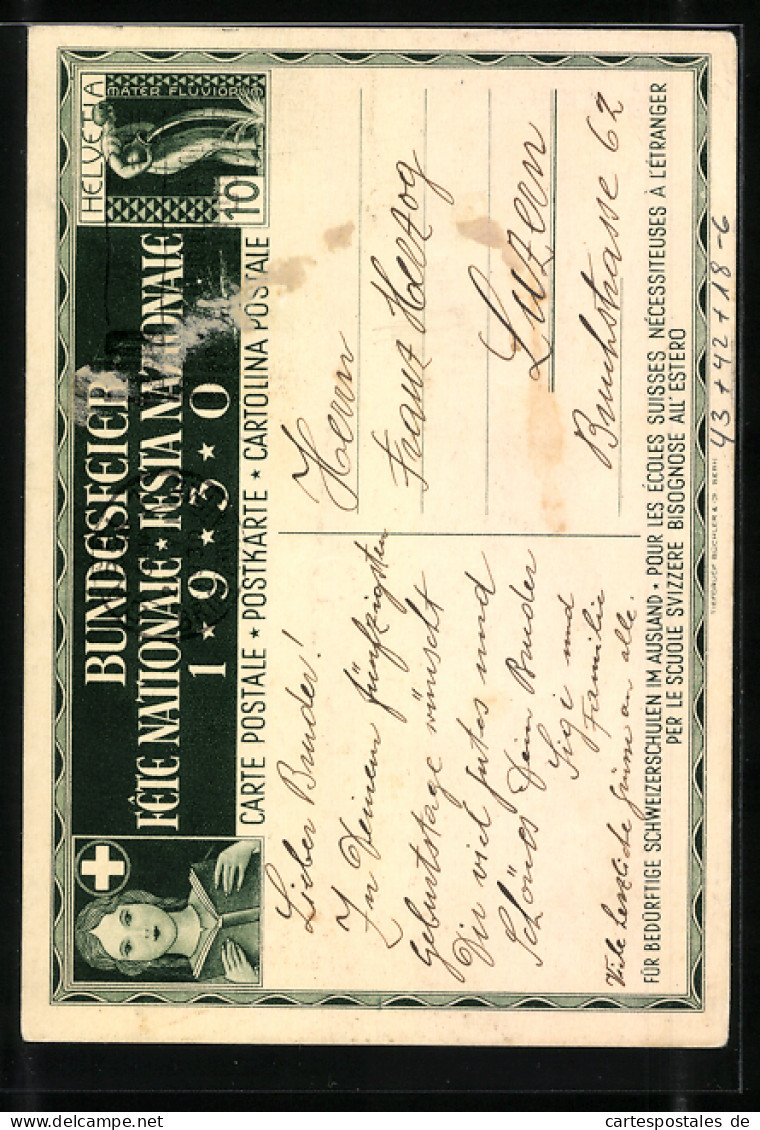 HELVETIA
MATER FLUVIORUM
10
BUNDESFEIER
FÊTE NATIONALE ★ FESTA NAZIONALE
1 ★ 9 ★ 3 ★ 0
CARTE POSTALE ★ POSTKARTE ★ CARTOLINA POSTALE
Lieber Bruder!
Zu Deinem fünfzigsten
Geburtstage wünscht
Dir viel gutes und
Schönes Dein Bruder
Sigi und
Familie
Viele herzliche Grüsse an alle.
Herrn
Franz Herzog
Luzern
Bruchstrasse 62
FÜR BEDÜRFTIGE SCHWEIZERSCHULEN IM AUSLAND • POUR LES ÉCOLES SUISSES NÉCESSITEUSES À L'ÉTRANGER
PER LE SCUOLE SVIZZERE BISOGNOSE ALL'ESTERO
TIEFDRUCK BÜCHLER & Co. BERN
43 + 42 + 18 - 6
cartespostales de